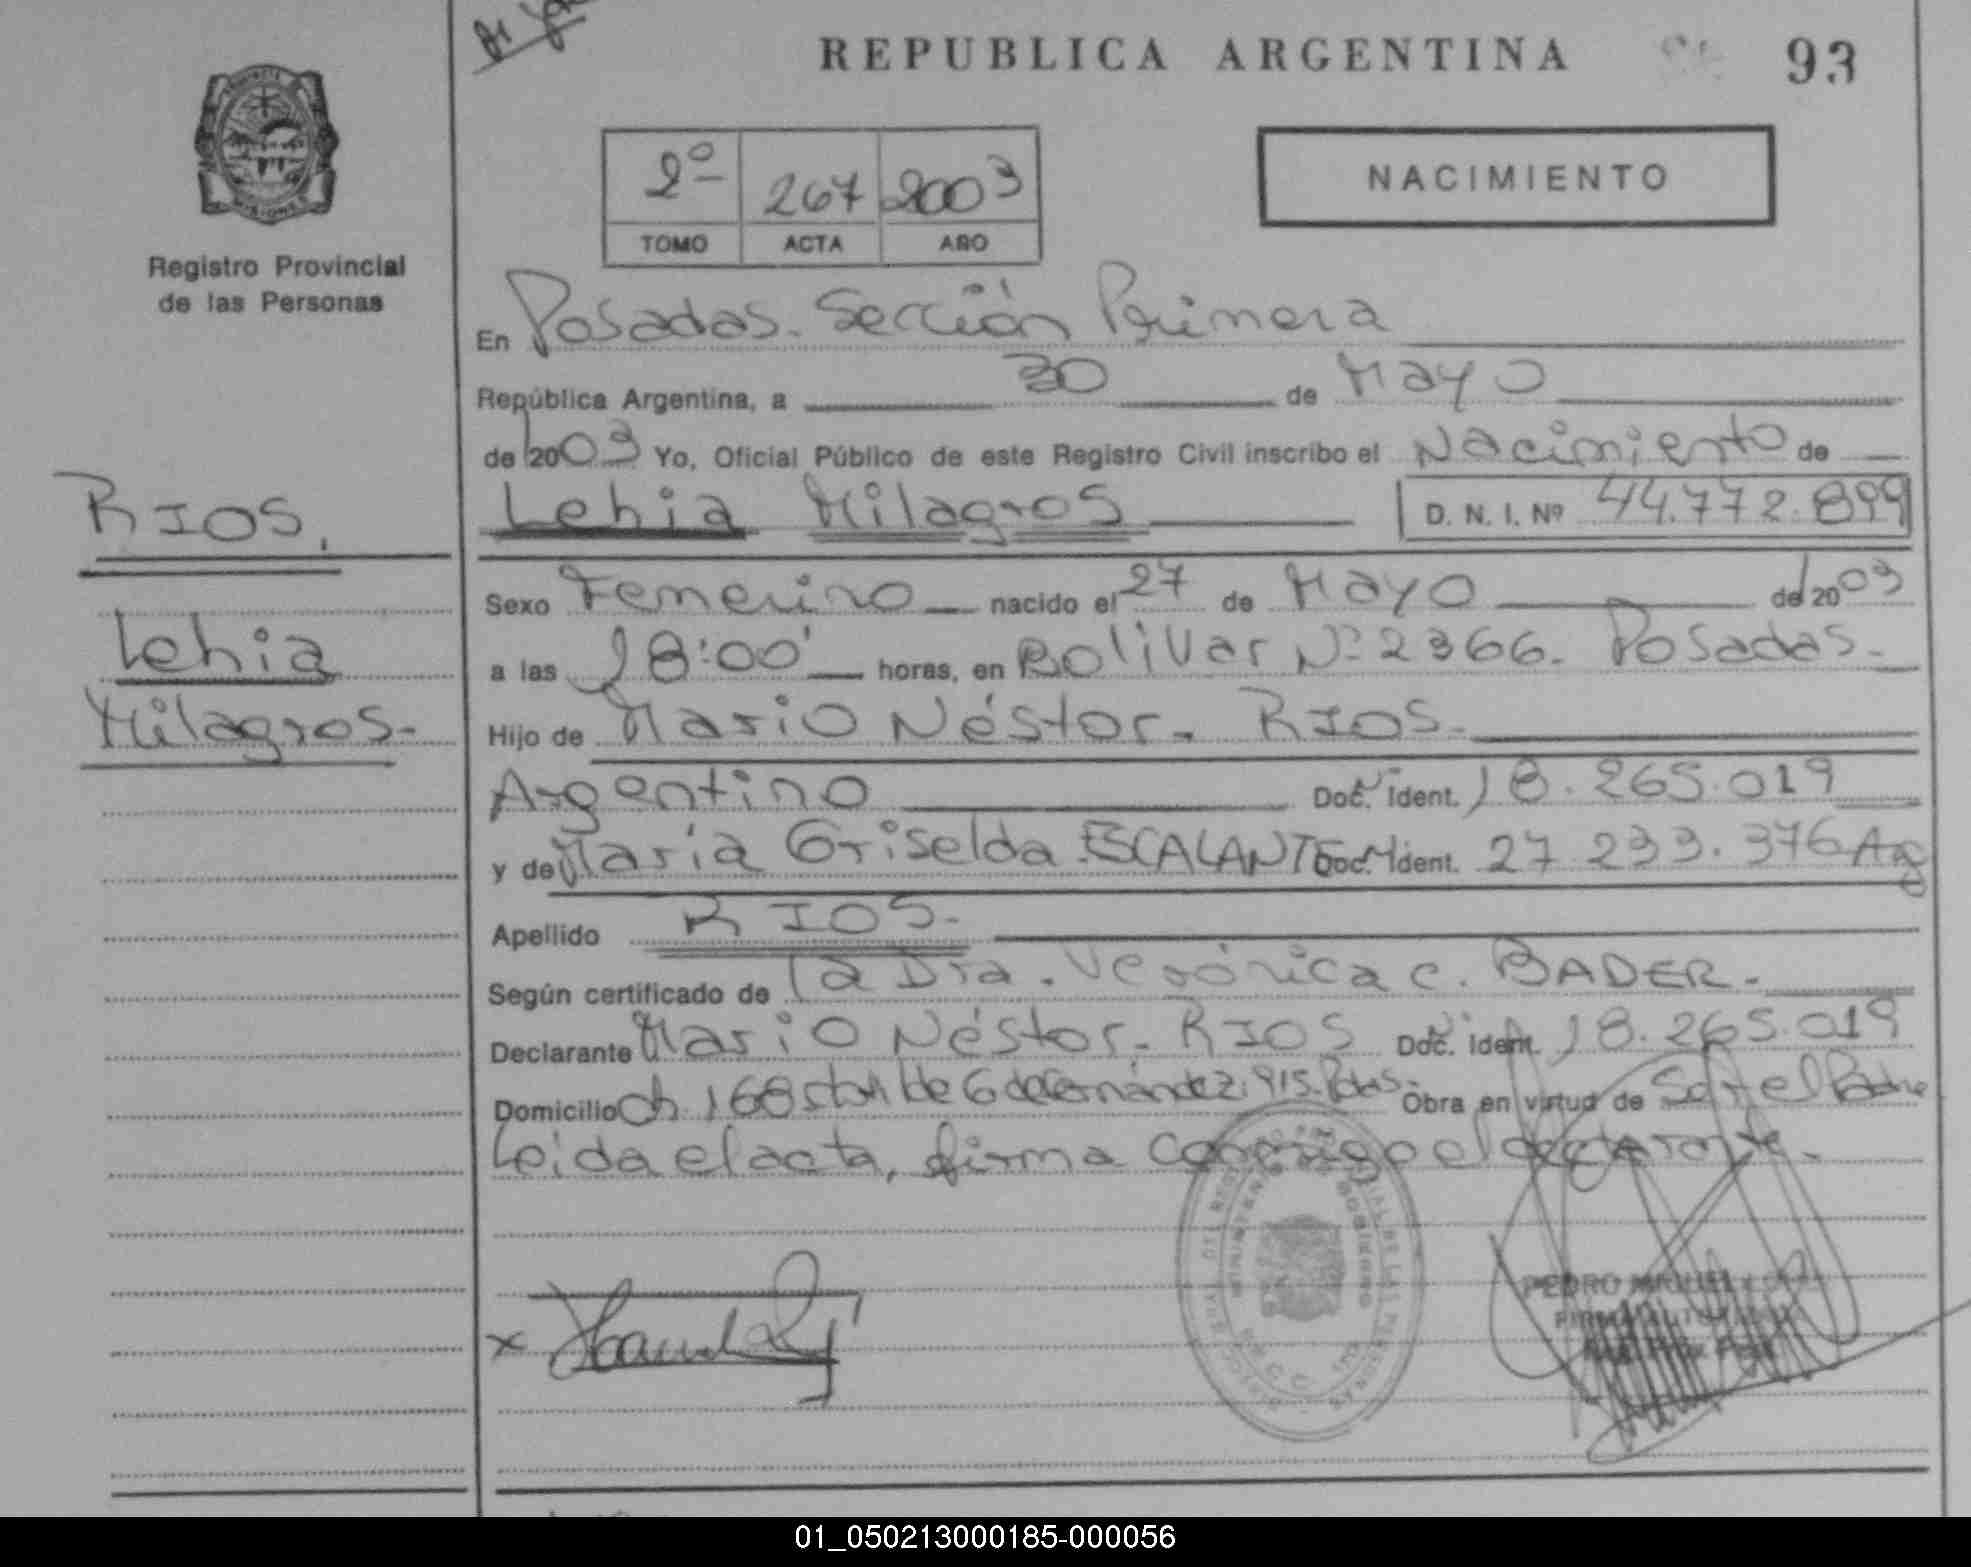 REPUBLICA ARGENTINA
93
2º 267 2003
TOMO ACTA AÑO
NACIMIENTO
Registro Provincial
de las Personas
En Posadas. Sección Primera
República Argentina, a 30 de Mayo
de 2003 Yo, Oficial Público de este Registro Civil inscribo el Nacimiento de
Lehia Milagros D. N. I. Nº 44.772.899
RIOS,
Lehia
Milagros.
Sexo Femenino nacido el 27 de Mayo de 2003
a las 18:00' horas, en Bolivar Nº 2366. Posadas.
Hijo de Mario Néstor. RIOS.
Argentino Doc. Ident. 18.265.019
y de Maria Griselda ESCALANTE Doc. Ident. 27 233.376 Arg
Apellido RIOS.
Según certificado de la Dra. Verónica C. BADER.
Declarante Mario Néstor. RIOS Doc. Ident. 18.265.019
Domicilio Ch. 168 Obra en virtud de Ser el Padre
Leida el acta, firma conmigo el declarante.
PEDRO MIGUEL
01_050213000185-000056